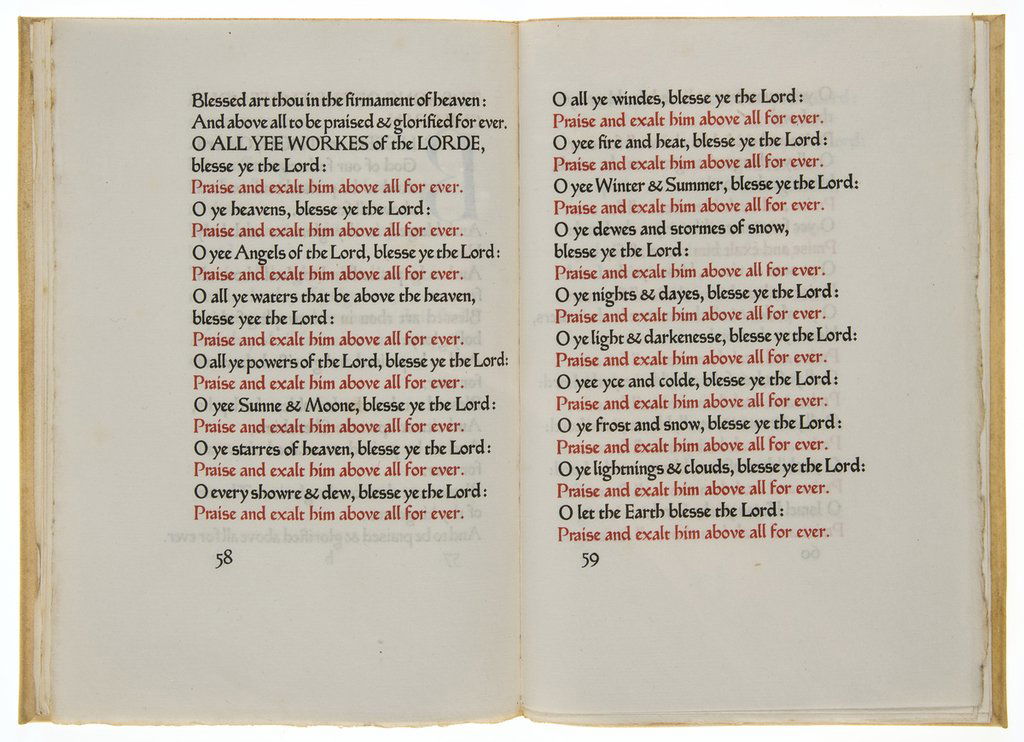 Blessed art thou in the firmament of heaven:
And above all to be praised & glorified for ever.
O ALL YEE WORKES of the LORDE,
blesse ye the Lord:
Praise and exalt him above all for ever.
O ye heavens, blesse ye the Lord:
Praise and exalt him above all for ever.
O yee Angels of the Lord, blesse ye the Lord:
Praise and exalt him above all for ever.
O all ye waters that be above the heaven,
blesse yee the Lord:
Praise and exalt him above all for ever.
O all ye powers of the Lord, blesse ye the Lord:
Praise and exalt him above all for ever.
O yee Sunne & Moone, blesse ye the Lord:
Praise and exalt him above all for ever.
O ye starres of heaven, blesse ye the Lord:
Praise and exalt him above all for ever.
O every showre & dew, blesse ye the Lord:
Praise and exalt him above all for ever.
58
O all ye windes, blesse ye the Lord:
Praise and exalt him above all for ever.
O yee fire and heat, blesse ye the Lord:
Praise and exalt him above all for ever.
O yee Winter & Summer, blesse ye the Lord:
Praise and exalt him above all for ever.
O ye dewes and stormes of snow,
blesse ye the Lord:
Praise and exalt him above all for ever.
O ye nights & dayes, blesse ye the Lord:
Praise and exalt him above all for ever.
O ye light & darkenesse, blesse ye the Lord:
Praise and exalt him above all for ever.
O yee yce and colde, blesse ye the Lord:
Praise and exalt him above all for ever.
O ye frost and snow, blesse ye the Lord:
Praise and exalt him above all for ever.
O ye lightnings & clouds, blesse ye the Lord:
Praise and exalt him above all for ever.
O let the Earth blesse the Lord:
Praise and exalt him above all for ever.
59